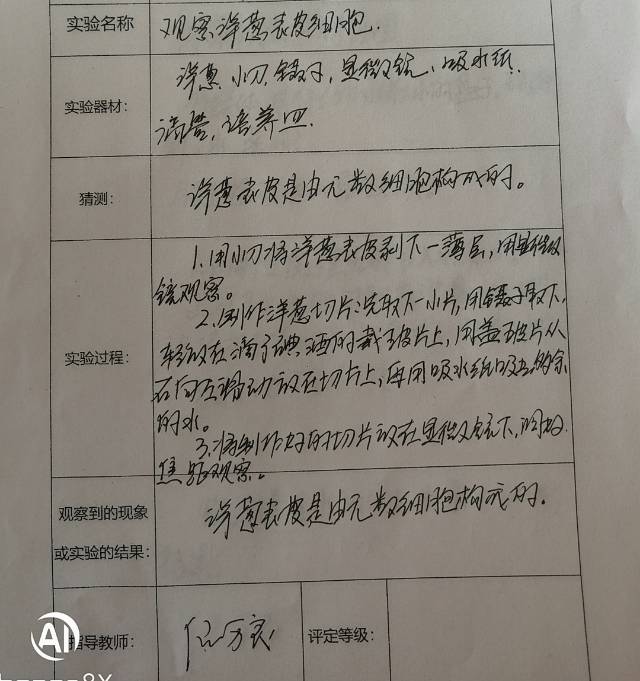 实验名称
观察洋葱表皮细胞.
实验器材:
洋葱、小刀、镊子,显微镜、吸水纸.
滴管,培养皿.
猜测:
洋葱表皮是由无数细胞构成的。
实验过程:
1.用小刀将洋葱表皮剥下一薄层,用显微
镜观察。
2.制作洋葱切片:先取下一小片,用镊子取下,
轻放在滴了碘酒的载玻片上,用盖玻片从
右向左滑动放在切片上,再用吸水纸吸去多余
的水。
3.将制作好的切片放在显微镜下,调好
焦距观察。
观察到的现象
或实验的结果:
洋葱表皮是由无数细胞构成的.
指导教师:
评定等级:
AI